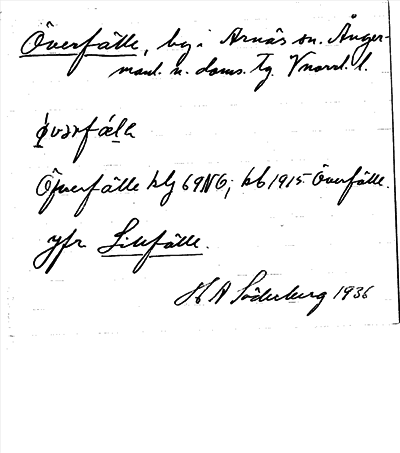 Överfälle, by i Arnäs sn. Ånger-
manl. n. doms. tg. Vnorrl. l.
Öfverfälle klg 69NÖ; kb 1915 Överfälle.
jfr Lillfälle.
H A Söderberg 1936